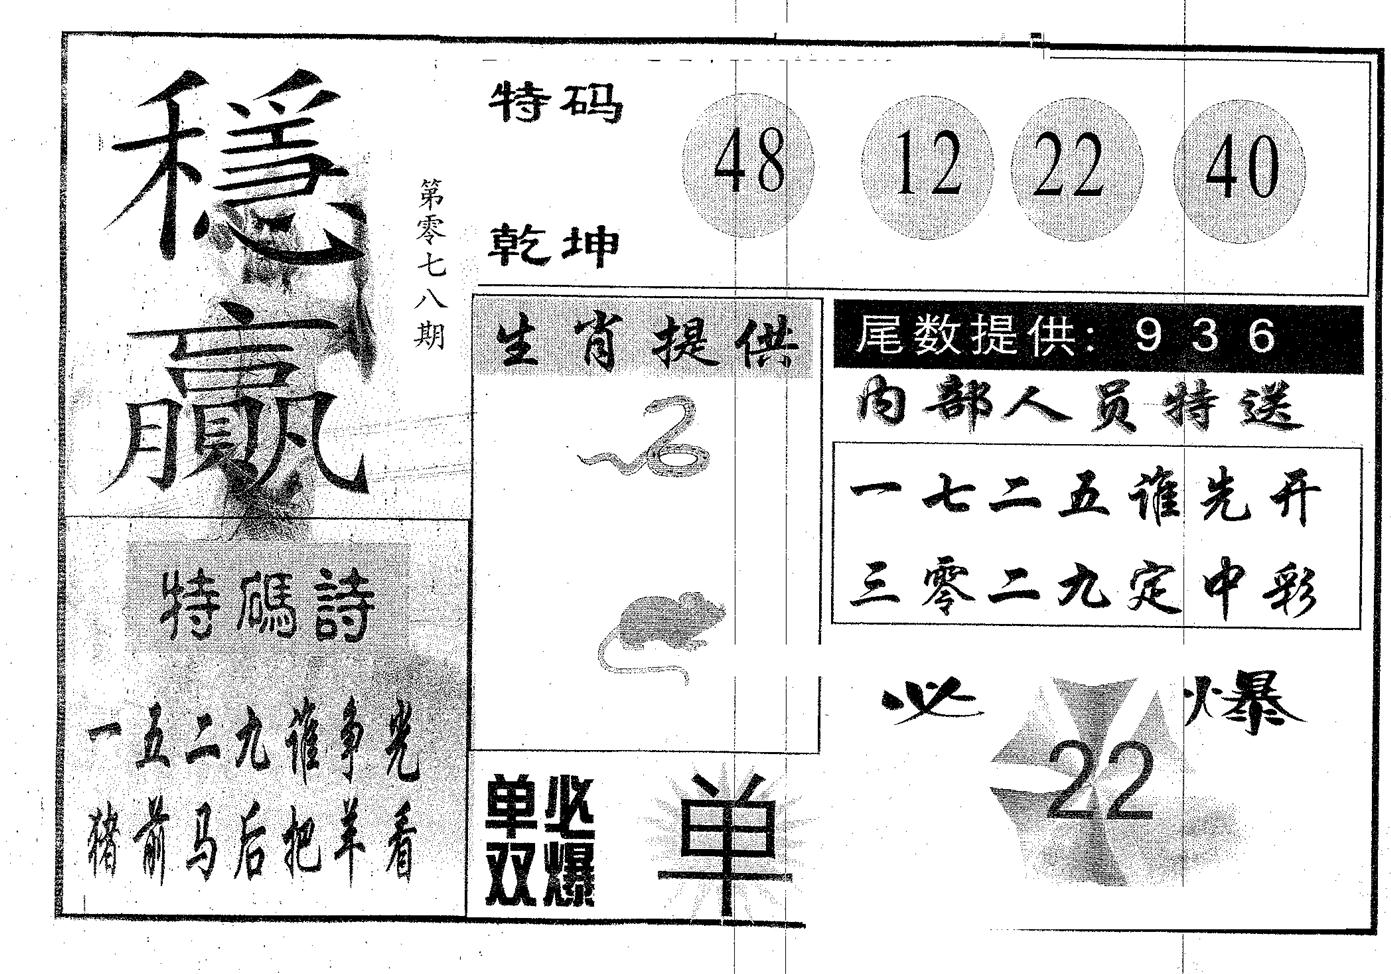 穩赢
第零七八期
特码
乾坤
48 12 22 40
生肖提供
尾数提供: 9 3 6
内部人员特送
一七二五谁先开
三零二九定中彩
特碼詩
一五二九谁争光
猪前马后把羊看
必爆
22
单双必爆
单